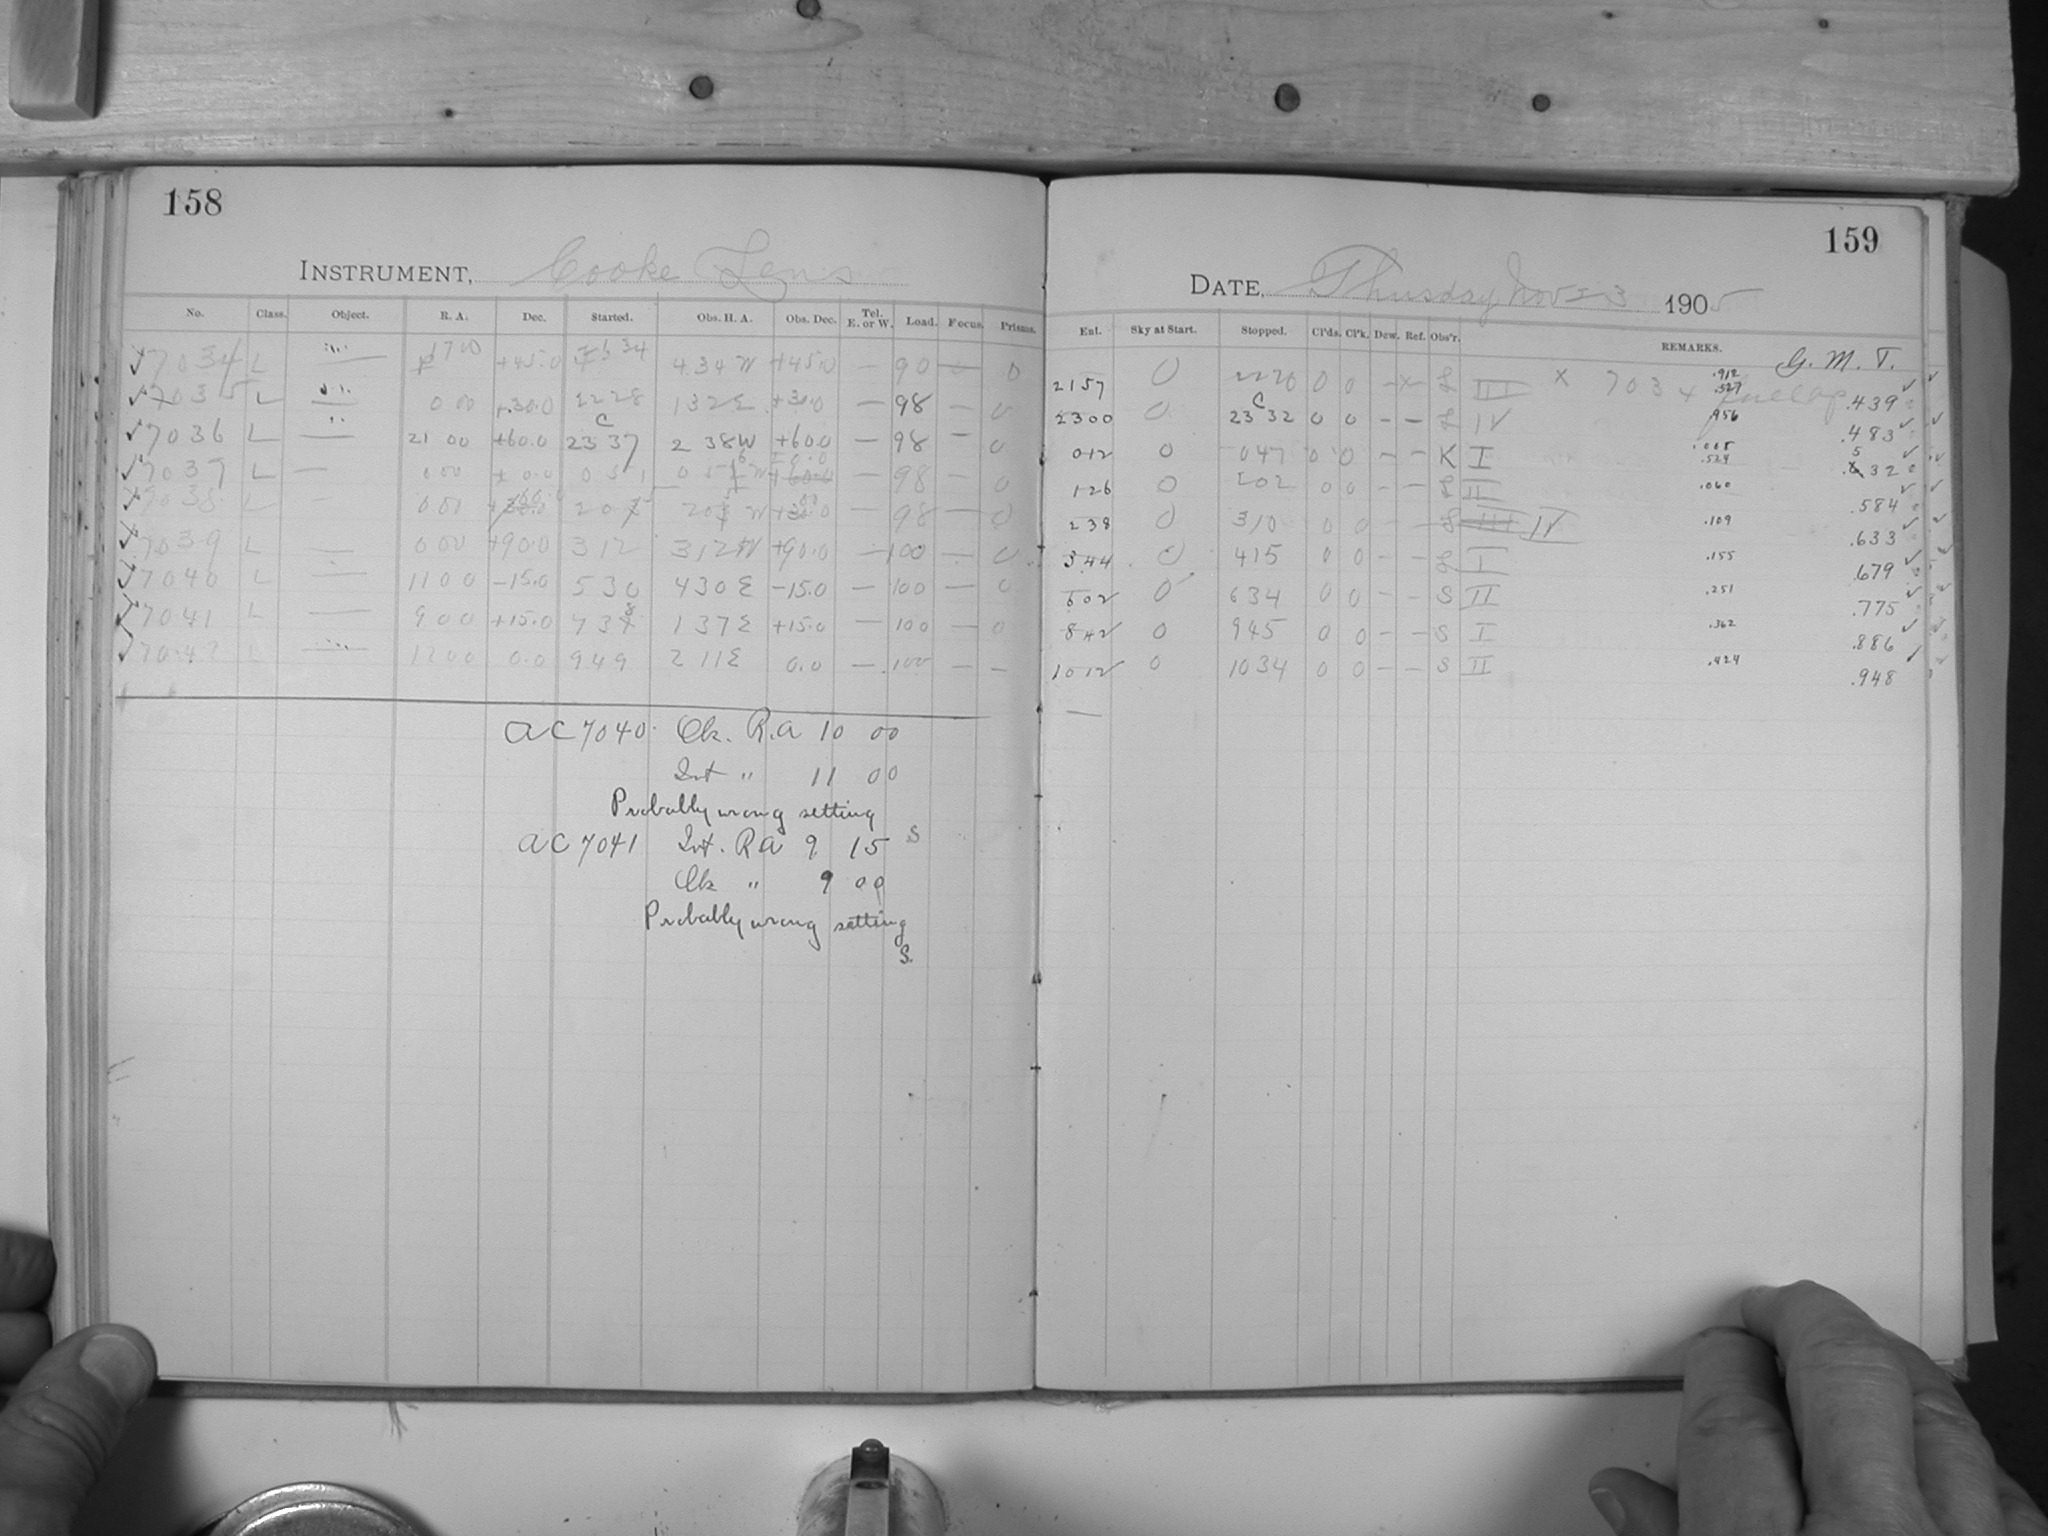 158
INSTRUMENT, Cooke Lens
No. Class. Object. R. A. Dec. Started. Obs. H. A. Obs. Dec. Tel. E. or W. Load. Focus. Prisms.
7034 L — 1700 +45.0 434 W +45.0 — 90 — 0
7035 L — 0 00 +30.0 2228 132 E +30.0 — 98 — 0
7036 L — 21 00 +60.0 2337 2 38 W +60.0 — 98 — 0
7037 L — 0 00 0.0 0 51 — 98 — 0
7038 L — 0 00 — 98 — 0
7039 L — 0 00 +90.0 312 312 W +90.0 — 100 — 0
7040 L — 1100 -15.0 530 430 E -15.0 — 100 — 0
7041 L — 900 +15.0 137 E +15.0 — 100 — 0
7042 L — 1200 0.0 949 211 E 0.0 — 100 — —
AC 7040 Ck. R.A 10 00
Int " 11 00
Probably wrong setting
S
AC 7041 Int. RA 9 15
Ck " 9 00
Probably wrong setting
S.
159
DATE, Thursday Nov 23 1905
Ent. Sky at Start. Stopped. Cl'ds. Cl'k. Dew. Ref. Obs'r. REMARKS. G. M. T.
2157 0 2220 0 0 — × L III × 7034 .912 .527 .439
2300 0 2332 0 0 — — L IV .956 .483
012 0 047 0 0 — — K I .005 .524 .532
126 0 202 0 0 — — L II .060 .584
238 0 310 0 0 — — L III IV .109 .633
344 0 415 0 0 — — L I .155 .679
602 0 634 0 0 — — S II .251 .775
842 0 945 0 0 — — S I .362 .886
1012 0 1034 0 0 — — S II .424 .948